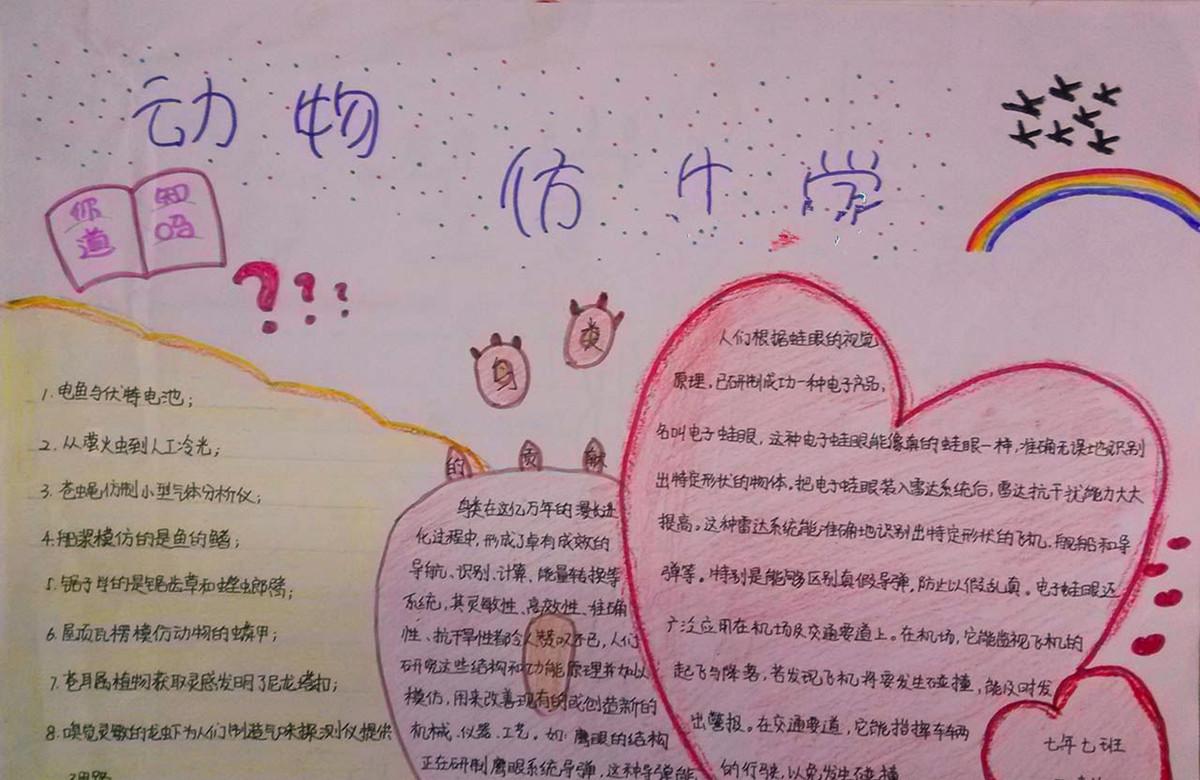 动物
仿生学
你知
道吗
???
1. 电鱼与伏特电池;
2. 从萤火虫到人工冷光;
3. 苍蝇仿制小型气体分析仪;
4. 桨模仿的是鱼的鳍;
5. 锯子学的是锯齿草和螳螂臂;
6. 屋顶瓦楞模仿动物的鳞甲;
7. 苍耳属植物获取灵感发明了尼龙搭扣;
8. 嗅觉灵敏的龙虾为人们制造气味探测仪提供
了思路
鸟类
的贡献
鸟类在这亿万年的漫长进
化过程中,形成了卓有成效的
导航、识别、计算、能量转换等
系统,其灵敏性、高效性、准确
性、抗干旱性都令人赞叹不已,人们
研究这些结构和功能原理并加以
模仿,用来改善现有的或创造新的
机械、仪器、工艺。如:鹰眼的结构
正在研制鹰眼系统导弹,这种导弹能
人们根据蛙眼的视觉
原理,已研制成功一种电子产品,
名叫电子蛙眼,这种电子蛙眼能像真的蛙眼一样,准确无误地识别
出特定形状的物体。把电子蛙眼装入雷达系统后,雷达抗干扰能力大大
提高。这种雷达系统能准确地识别出特定形状的飞机、舰船和导
弹等。特别是能够区别真假导弹,防止以假乱真。电子蛙眼还
广泛应用在机场及交通要道上。在机场,它能监视飞机的
起飞与降落,若发现飞机将要发生碰撞,能及时发
出警报。在交通要道,它能指挥车辆
的行驶,以免发生碰撞
七年七班